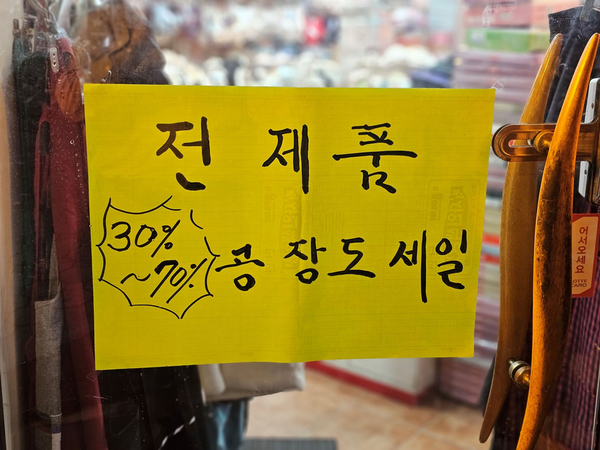 전 제 품
30%
~70%
공 장 도 세 일
어서오세요